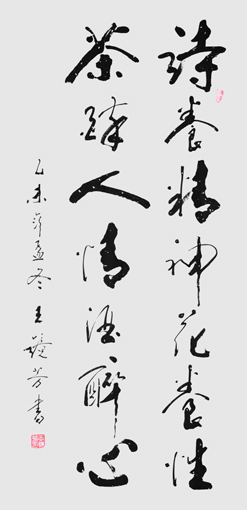 詩養精神花養性
茶人情酒醉心
乙未年孟冬王芳書